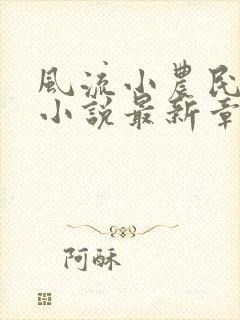 風流小農民
小說最新章
阿酥